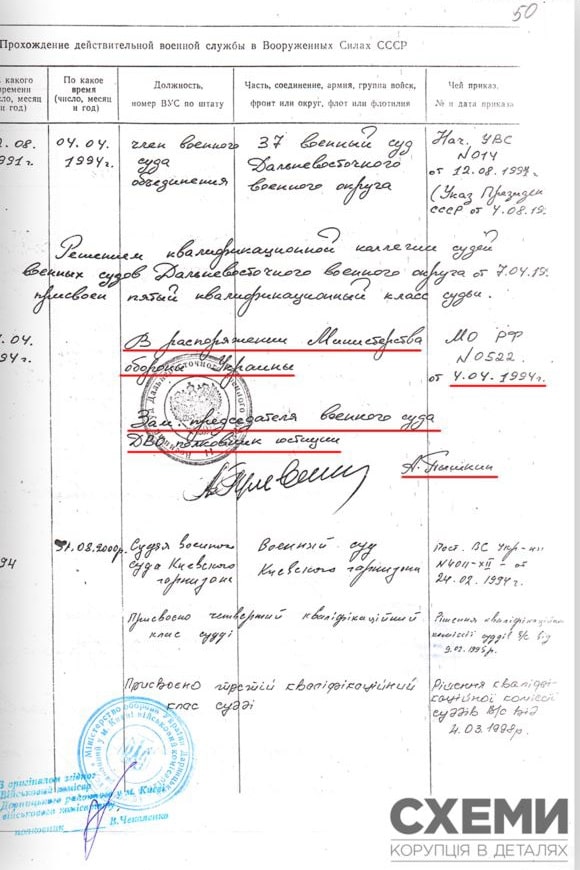 50
Прохождение действительной военной службы в Вооруженных Силах СССР
какого
времени
(число, месяц
и год)
По какое
время
(число, месяц
и год)
Должность,
номер ВУС по штату
Часть, соединение, армия, группа войск,
фронт или округ, флот или флотилия
Чей приказ,
№ и дата приказа
.08.
1991г.
04.04.
1994г.
член военного
суда
объединения
37 военный суд
Дальневосточного
военного округа
Нач. УВС
N014
от 12.08.1991г.
(Указ Президен
СССР от 4.08.19
Решением квалификационной коллегии судей
военных судов Дальневосточного военного округа от 7.04.19
присвоен пятый квалификационный класс судьи.
.04.
94г.
В распоряжении Министерства
обороны Украины
МО РФ
N0522
от 4.04.1994г.
Зам. председателя военного суда
ДВО полковник юстиции
А. Пашкин
94
31.08.2000р.
Судья военного
суда Киевского
гарнизона
Военный суд
Киевского гарнизона
Пост. ВС Укр-ни
N4011-XII - от
24.02.1994г.
Присвоєно четвертий кваліфікаційний
клас судді
Рішення кваліфікаційн
комісії суддів В/С від
9.02.1995р.
Присвоєно третій кваліфікаційний
клас судді
Рішення кваліфі-
каційної комісії
суддів В/С від
4.03.1998р.
З оригіналом згідно:
Військовий комісар
Дарницького районного у м. Києві
військового комісаріату
полковник
В. Четяєнко
СХЕМИ
КОРУПЦІЯ В ДЕТАЛЯХ